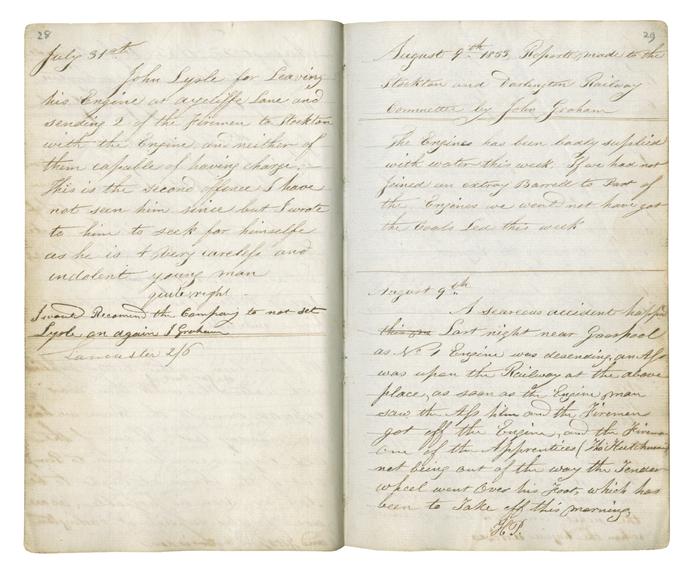 28
July 31st
John Lysle for Leaving
his Engine at aycliffe Lane and
sending 2 of the firemen to Stockton
with the Engine and neither of
them capable of having charge
This is the second offence I have
not seen him since but I wrote
to him to seek for himselfe
as he is a Very careless and
indolent young man
quite right
I would Recomend the Company to not set
Lysle on again J Graham
Lancaster 2/6
29
August 9th Reports, made to the
Stockton and Darlington Railway
Committee by John Graham
The Engines has been badly supplied
with water this week. If we had not
joined an extray Barrel to Part of
the Engines we went not have got
the Coals Led this week
August 9th
A searious accident happen
Last night near Goospool
as No 1 Engine was desending, an Ass
was upon the Railway at the above
place, as soon as the Engine man
saw the Ass him and the Firemen
got off the Engine, and the Fireman
one of the Apprentices (Thos Hutchinson)
not being out of the way the Tender
wheel went Over his Foot, which has
been to Take off this morning,